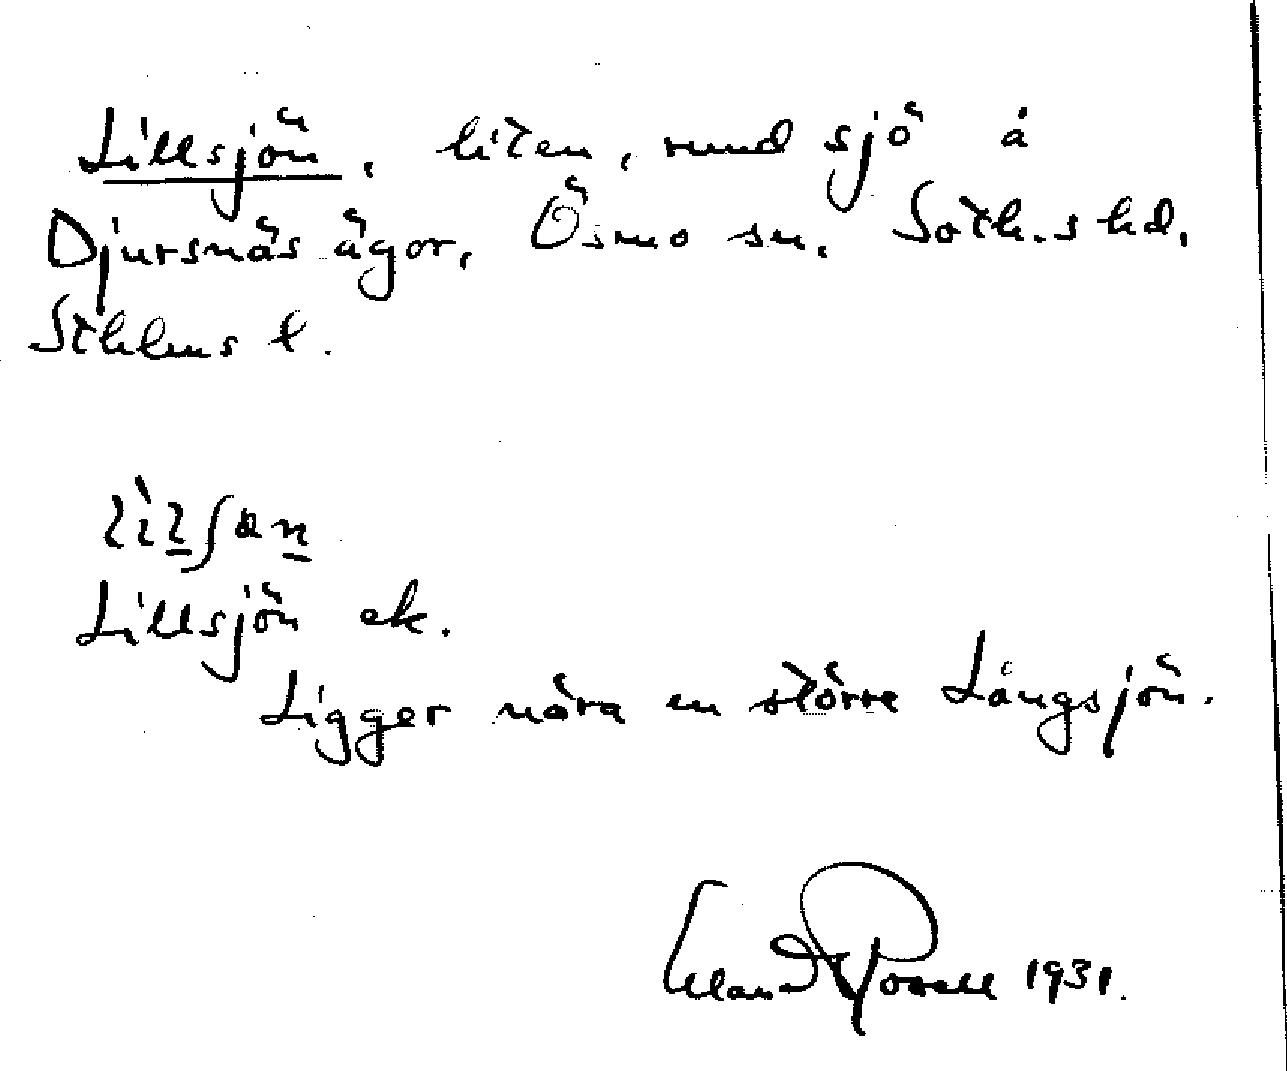 Lillsjön, liten, rund sjö å
Djursnäs ägor, Ösmo sn. Soth.s hd,
Sthlms l.
Lillsjön ek.
Ligger nära en större Långsjön.
1931.